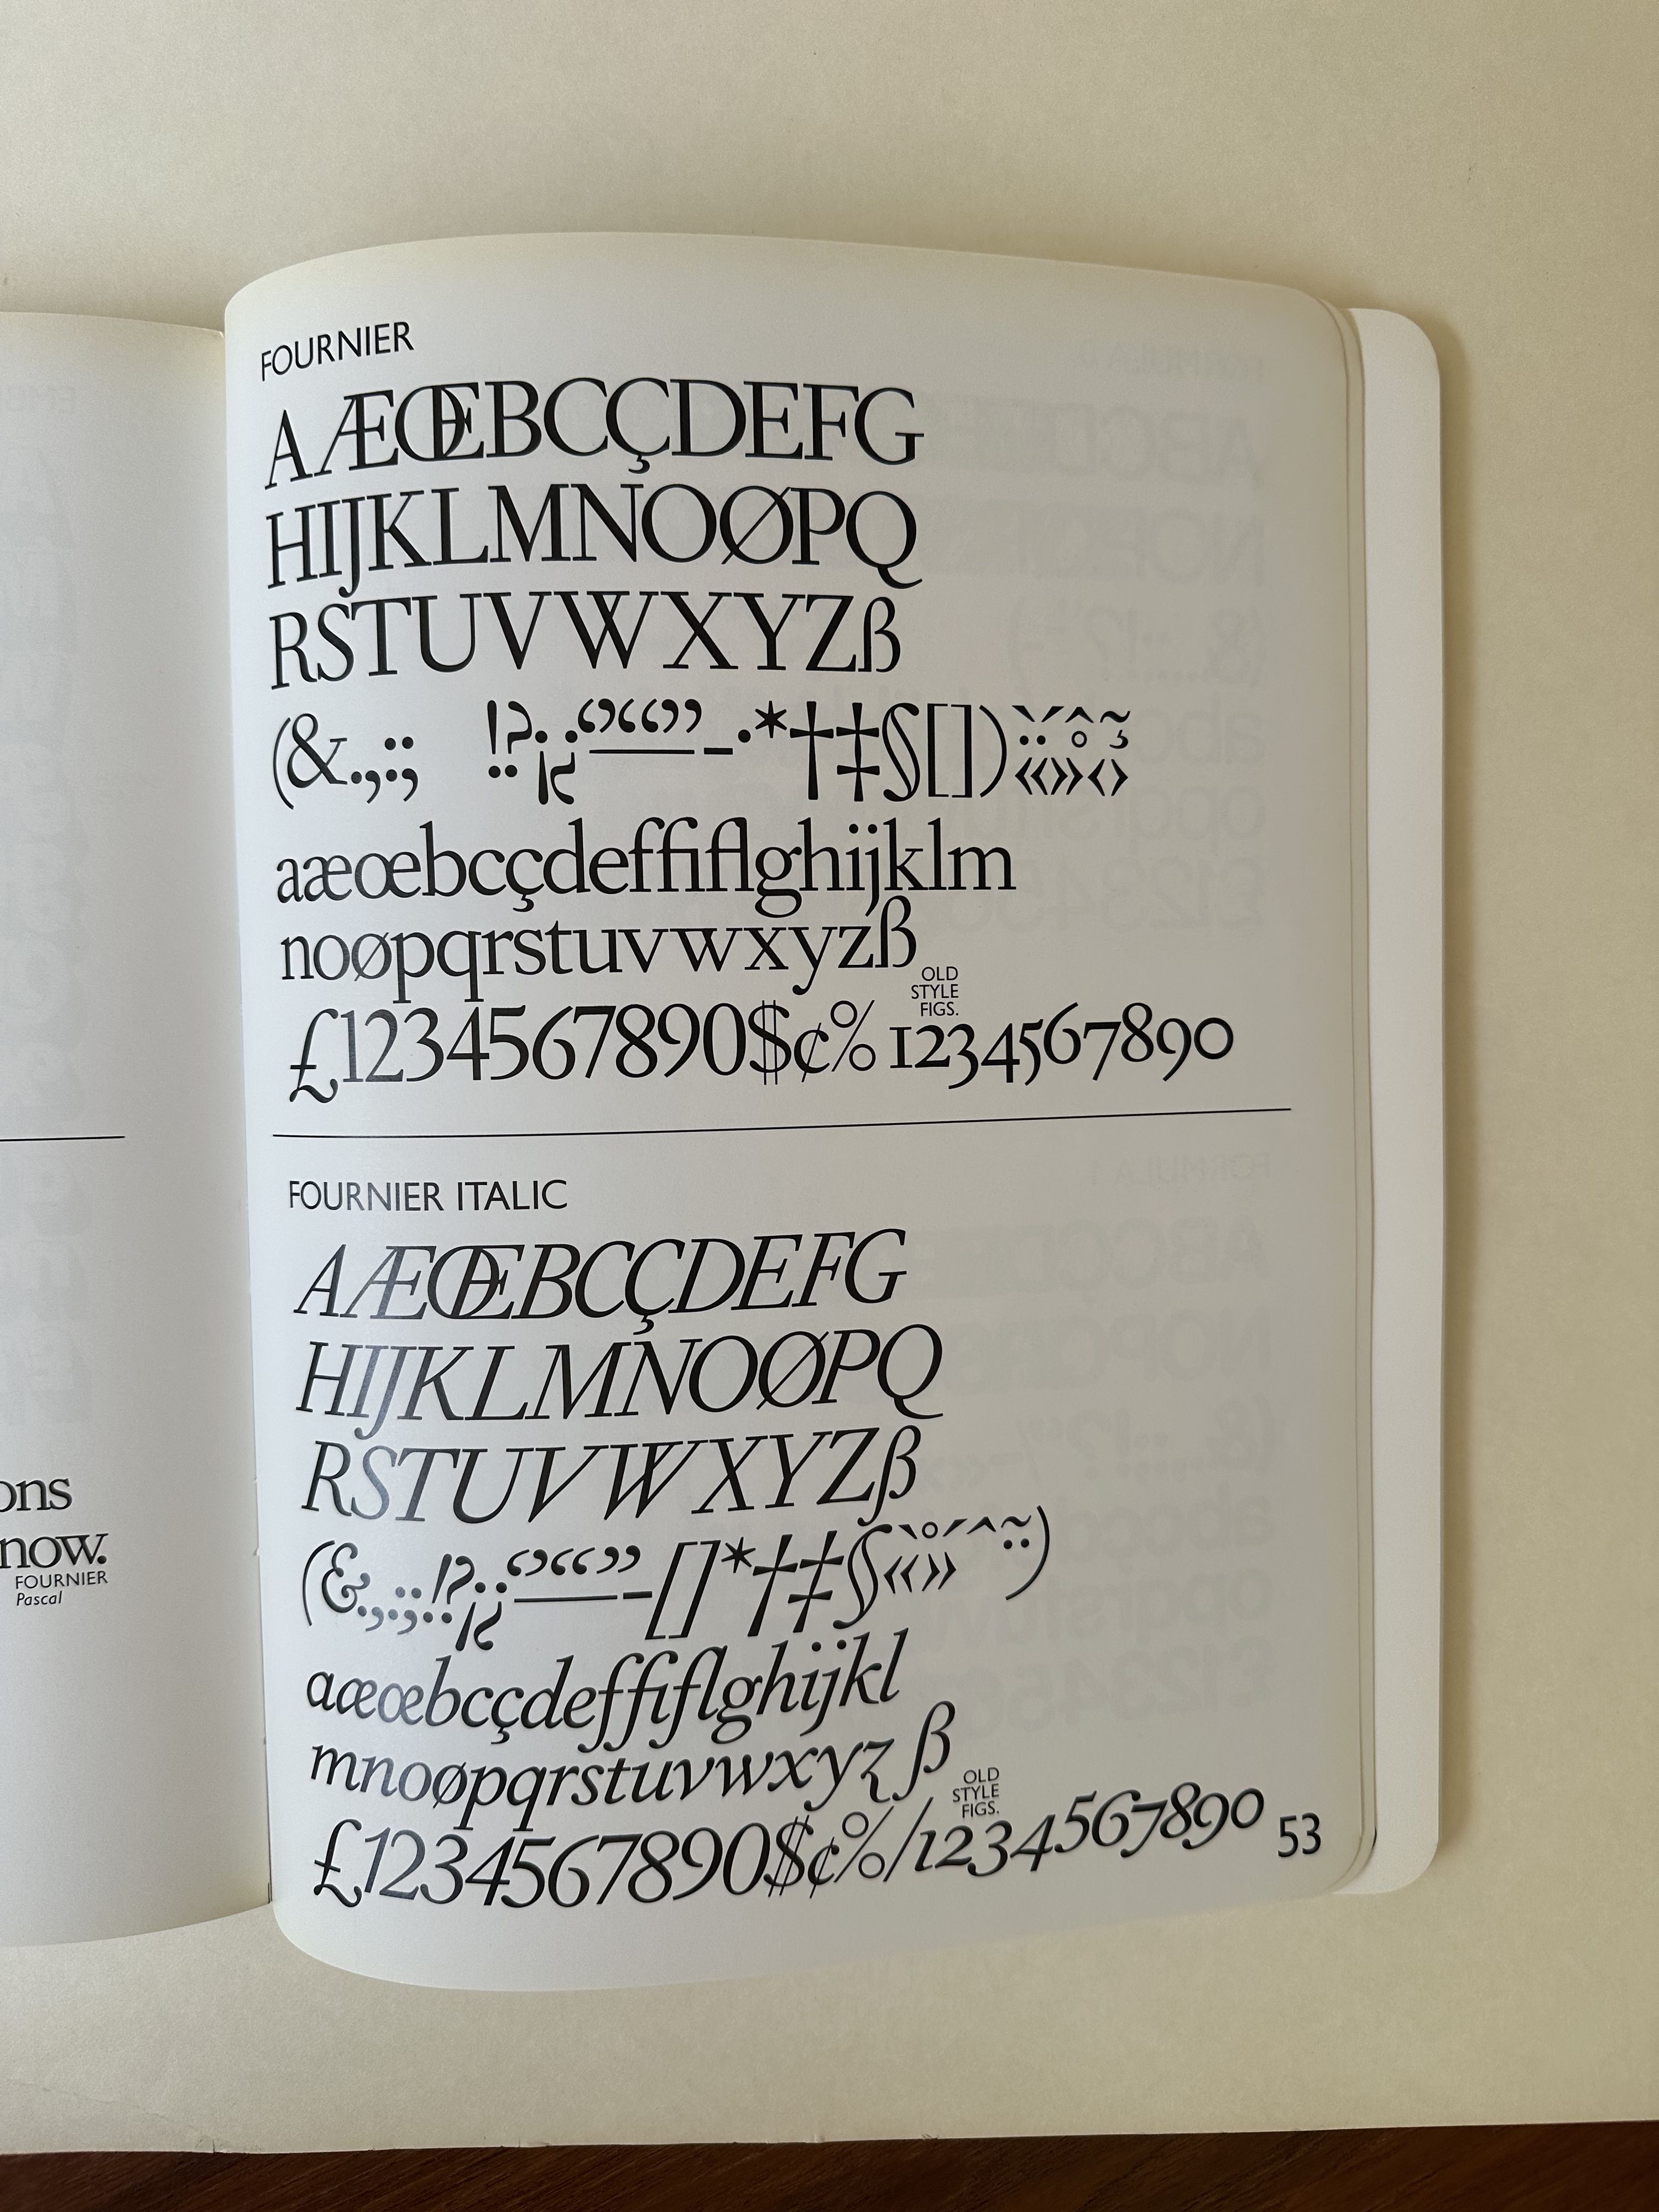 ons
now.
FOURNIER
Pascal
FOURNIER
AÆŒBCÇDEFG
HIJKLMNOØPQ
RSTUVWXYZß
(&.,:; !?¡¿‘’“”—-·*†‡§[])`´ˆ˜¨˚¸«»‹›
aæœbcçdeffiflghijklm
noøpqrstuvwxyzß
£1234567890$¢% OLD STYLE FIGS. 1234567890
FOURNIER ITALIC
AÆŒBCÇDEFG
HIJKLMNOØPQ
RSTUVWXYZß
(&.,:;..!?¡¿‘’“”—-[]*†‡§«»`˚´ˆ˜¨)
aæœbcçdeffiflghijkl
mnoøpqrstuvwxyzß
£1234567890$¢%/ OLD STYLE FIGS. 1234567890
53